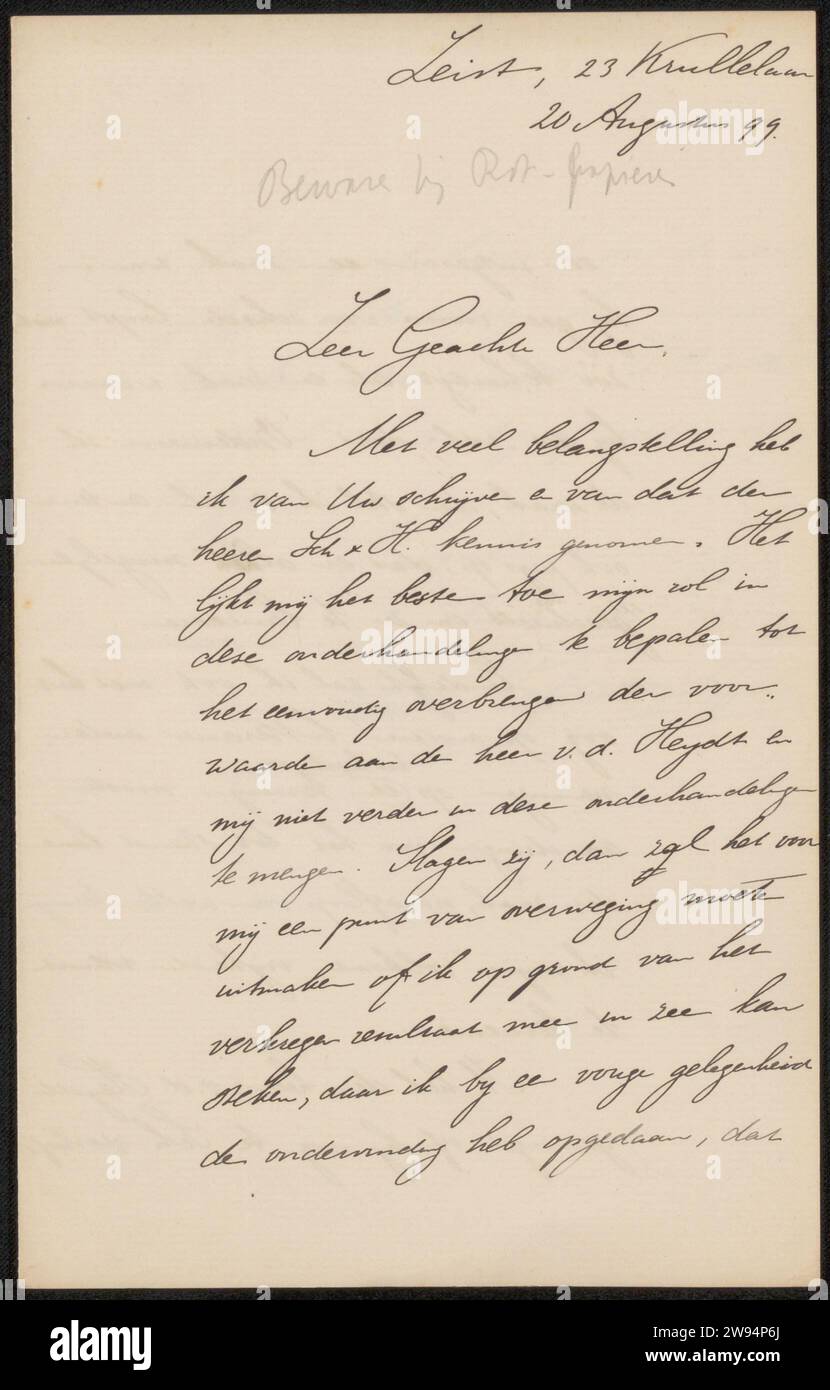 Zeist, 23 Krullelaan
20 Augustus 99.
Beware bij Rot-papieren
Zeer Geachte Heer,
Met veel belangstelling heb
ik van Uw schrijven en van dat der
heeren Sch & H. kennis genomen. Het
lijkt mij het beste toe mijn rol in
deze onderhandelingen te bepalen tot
het eenvoudig overbrengen der voor-
waarden aan den heer v.d. Heydt en
mij niet verder in deze onderhandelingen
te mengen. Slagen zij, dan zal het voor
mij een punt van overweging moeten
uitmaken of ik op grond van het
verkregen resultaat mee in zee kan
steken, daar ik bij een vorige gelegenheid
de ondervinding heb opgedaan, dat
alamy
alamy
Image ID: 2W94P6J
www.alamy.com